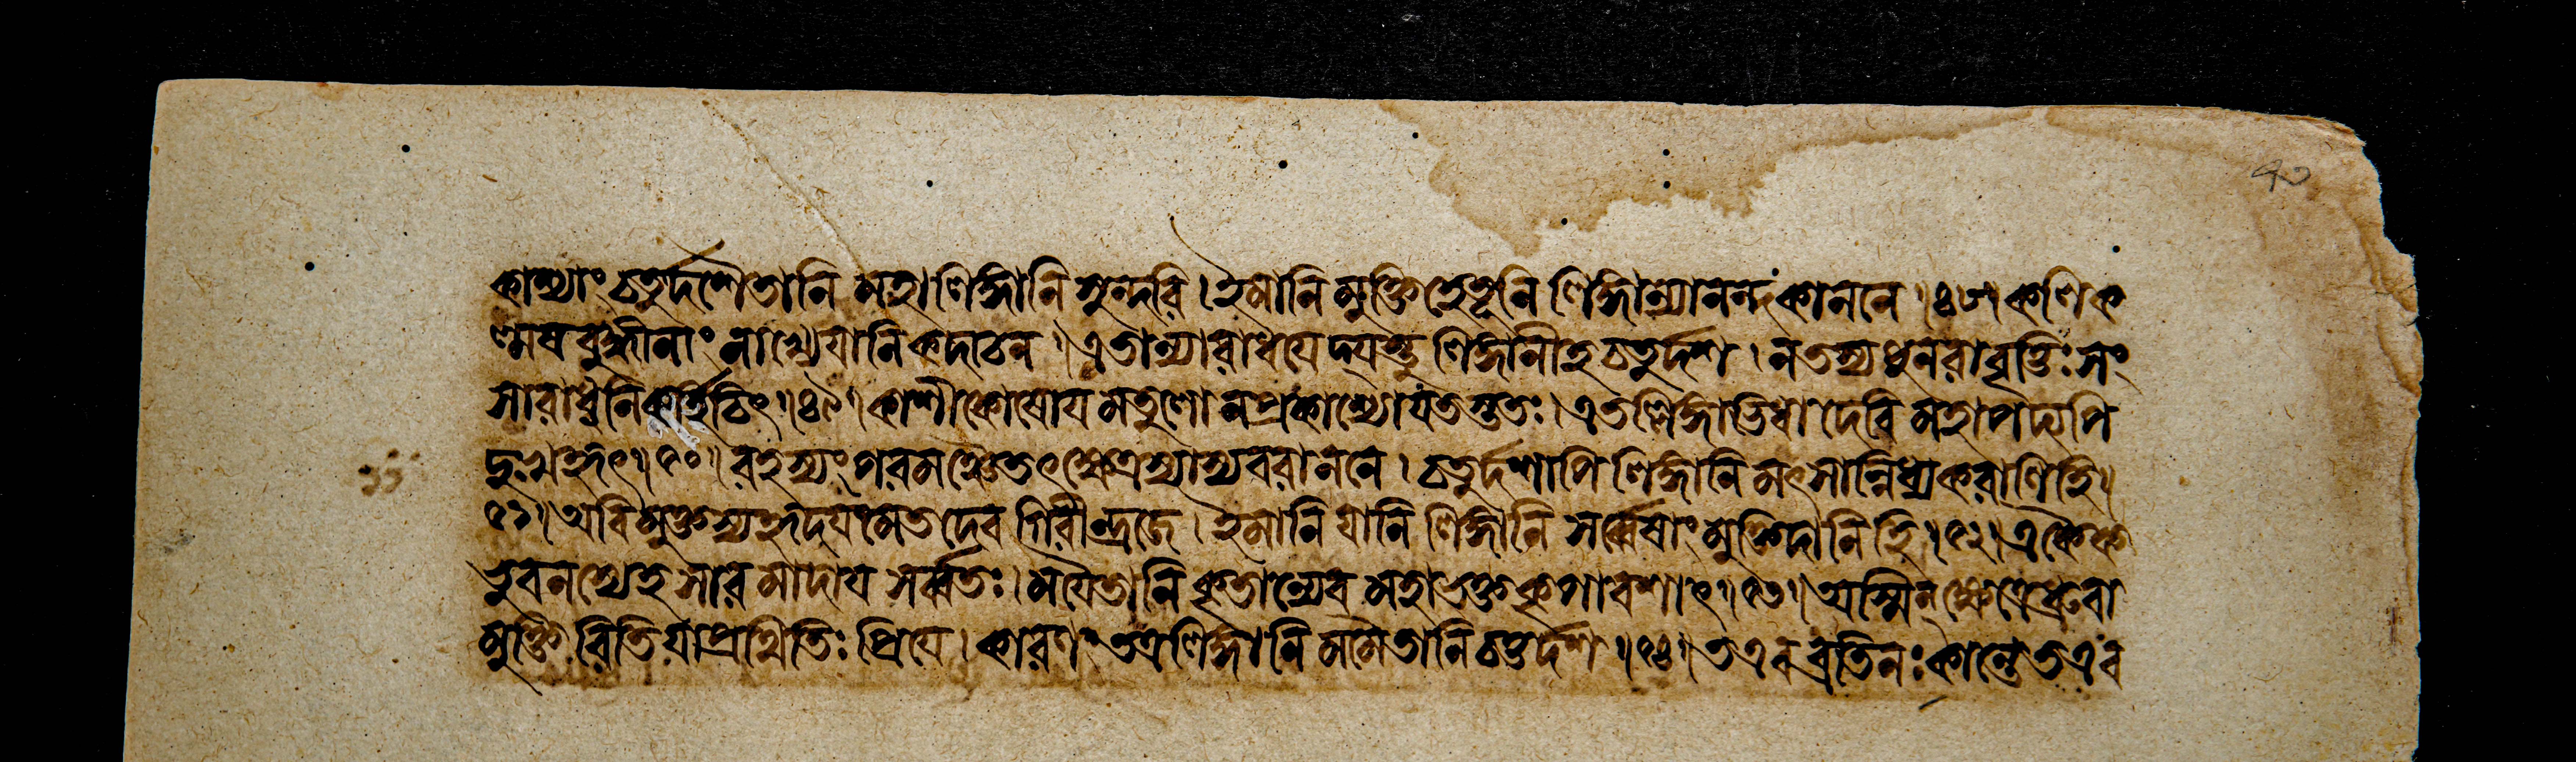 কাশ্যাং চতুর্দশৈতানি মহালিঙ্গানি সুন্দরি । ইমানি মুক্তিহেতূনি লিঙ্গান্যানন্দকাননে ॥ ৪৮ ॥ কলিক
ল্মষবুদ্ধীনাং নাখ্যেয়ানি কদাচন । এতান্যারাধয়েদ্যস্তু লিঙ্গানীহ চতুর্দশ । ন তস্য পুনরাবৃত্তিঃ সং
সারাধ্বনি কর্হিচিৎ ॥ ৪৯ ॥ কাশীকোষোয়মতুলো ন প্রকাশ্যো যতস্ততঃ । এতল্লিঙ্গাভিধা দেবি মহাপদ্যপি
দুঃখহৃৎ ॥ ৫০ ॥ রহস্যং পরমঞ্চৈতৎ ক্ষেত্রস্যাস্য বরাননে । চতুর্দশাপি লিঙ্গানি মৎসান্নিধ্যকরাণি হি ॥
৫১ ॥ অবিমুক্তস্য হৃদয়মেতদেব গিরীন্দ্রজে । ইমানি যানি লিঙ্গানি সর্ব্বেষাং মুক্তিদানি হি ॥ ৫২ ॥ একৈক
ভুবনস্যেহ সারমাদায় সর্ব্বতঃ । ময়ৈতানি কৃতান্যেব মহাভক্তকৃপাবশাৎ ॥ ৫৩ ॥ অস্মিন্ ক্ষেত্রে ধ্রুবা
মুক্তিরিতি যা প্রথিতিঃ প্রিয়ে । কারণং তত্র লিঙ্গানি মমৈতানি চতুর্দশ ॥ ৫৪ ॥ ত এব ব্রতিনঃ কান্তে ত এব